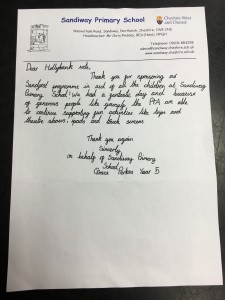 Sandiway Primary School
Cheshire West
and Chester
Sandiway, Northwich, Cheshire
Headteacher:
Telephone:
Dear Hollybank vets,
Thank you for sponsoring our
programme in aid of all the children at Sandiway
Primary School! We had a fantastic day and because
of generous people like yourselfs the PTA are able
to continue supporting fun activities like trips and
theatre shows, ipads and touch screens
Thank you again
Sincerely
on behalf of Sandiway Primary
School
Grace Parkes Year 5